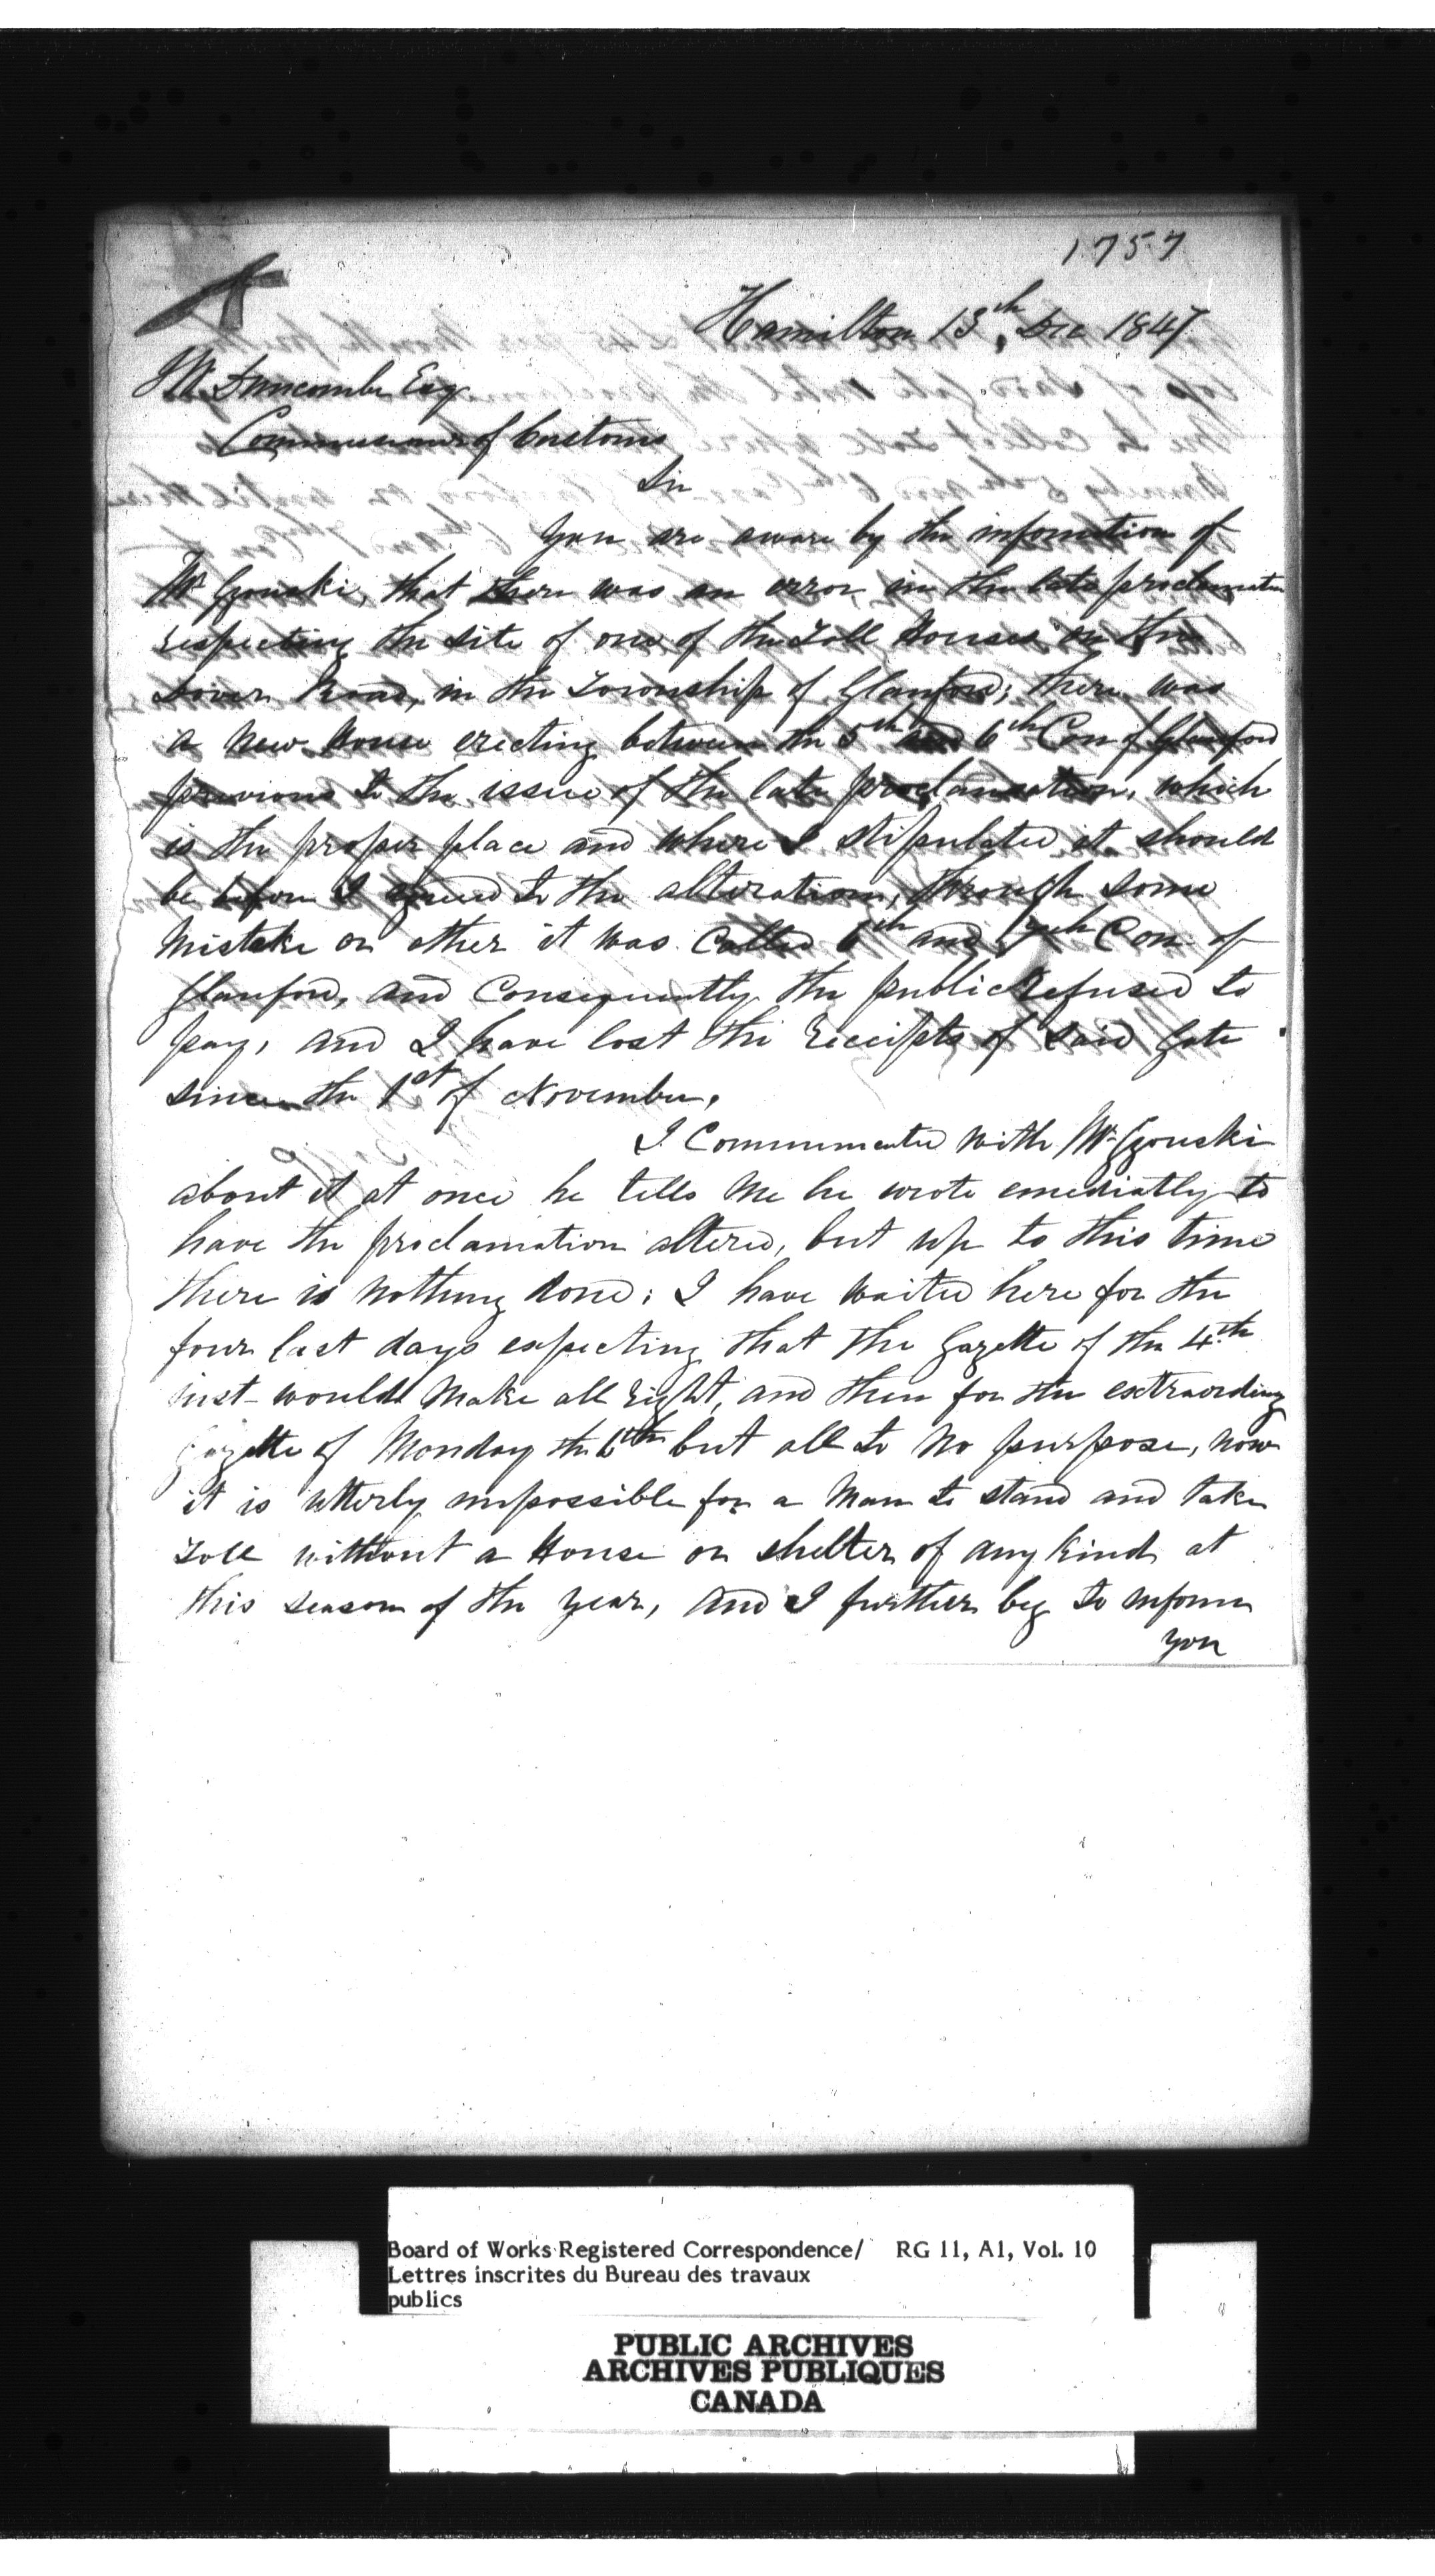 1757
Hamilton 13th, Dec 1847
J W Dunscomb Esq
Commissioner of Customs
Sir
You are aware by the information of
Mr Gzouski, that there was an error in the late proclamation
respecting the site of one of the Toll Houses on the
Dover Road, in the Township of Glanford; there was
a New House erecting between the 5th and 6th Con of Glanford
previous to the issue of the late proclamation, which
is the proper place and where I stipulated it should
be before I agreed to the alteration, through some
Mistake or other it was Called 6th and 7th Con. of
Glanford, and Consequently the public refused to
pay, and I have lost the receipts of said Gate
since the 1st of November,
I Communicated with Mr Gzouski
about it at once he tells Me he wrote emediatly to
have the proclamation altered, but up to this time
there is Nothing done; I have waited here for the
four last days expecting that the Gazette of the 4th
inst- would Make all right, and then for the extraordiny
Gazette of Monday the 6th but all to No purpose, now
it is utterly impossible for a Man to stand and take
Toll without a House or shelter of any kind at
this season of the year, and I further beg to inform
you
Board of Works Registered Correspondence/ RG 11, A1, Vol. 10
Lettres inscrites du Bureau des travaux
publics
PUBLIC ARCHIVES
ARCHIVES PUBLIQUES
CANADA